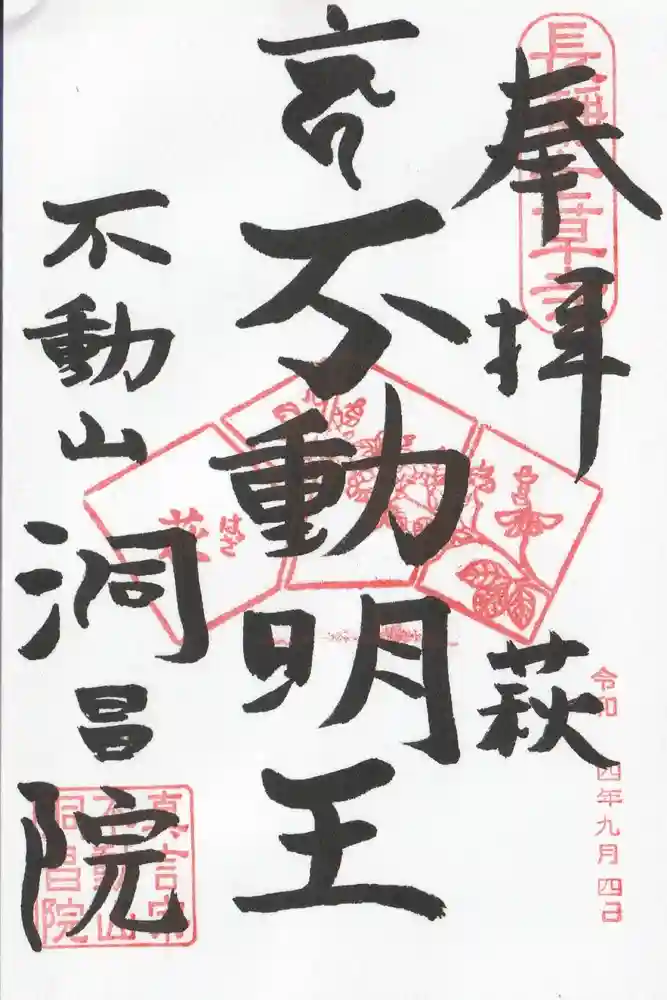 奉拝
萩
不動明王
不動山
洞昌院
長瀞七草寺
令和四年九月四日
はぎ
萩
真言宗
不動山
洞昌院